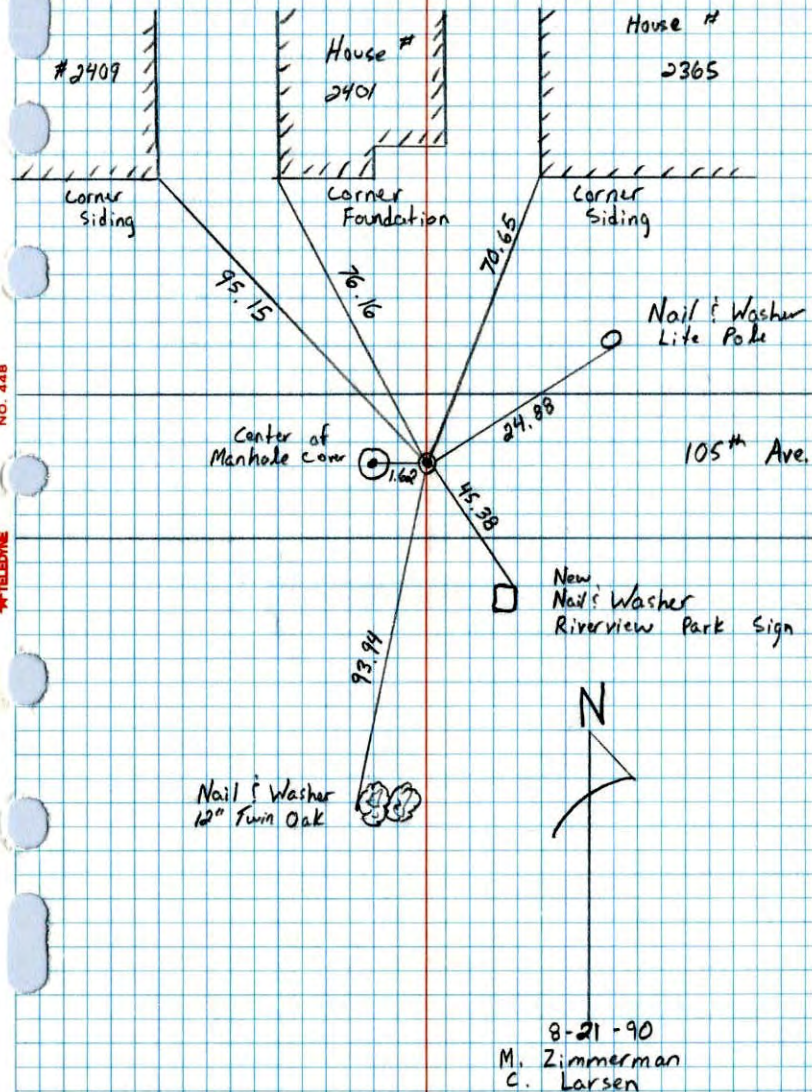 #2409
House #
2401
House #
2365
Corner
Siding
Corner
Foundation
Corner
Siding
95.15
76.16
70.65
Nail & Washer
Lite Pole
24.88
Center of
Manhole Cover
1.62
105th Ave.
45.38
New
Nail & Washer
Riverview Park Sign
93.94
Nail & Washer
12" Twin Oak
N
8-21-90
M. Zimmerman
C. Larsen
NO. 448
TELEDYNE